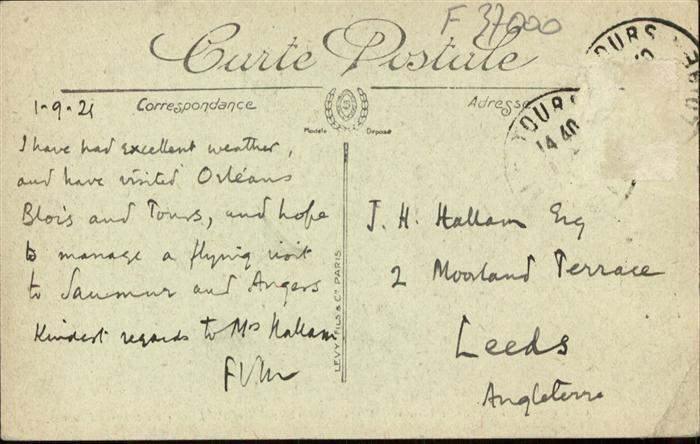 F 37000
Carte Postale
TOURS
TOURS
14 40
1-9-21
Correspondance
Adresse
Modèle Déposé
I have had excellent weather,
and have visited Orléans
Blois and Tours, and hope
to manage a flying visit
to Saumur and Angers
Kindest regards to Mrs Hallam
LEVY FILS & Cie PARIS
J. H. Hallam Esq
2 Moorland Terrace
Leeds
Angleterre